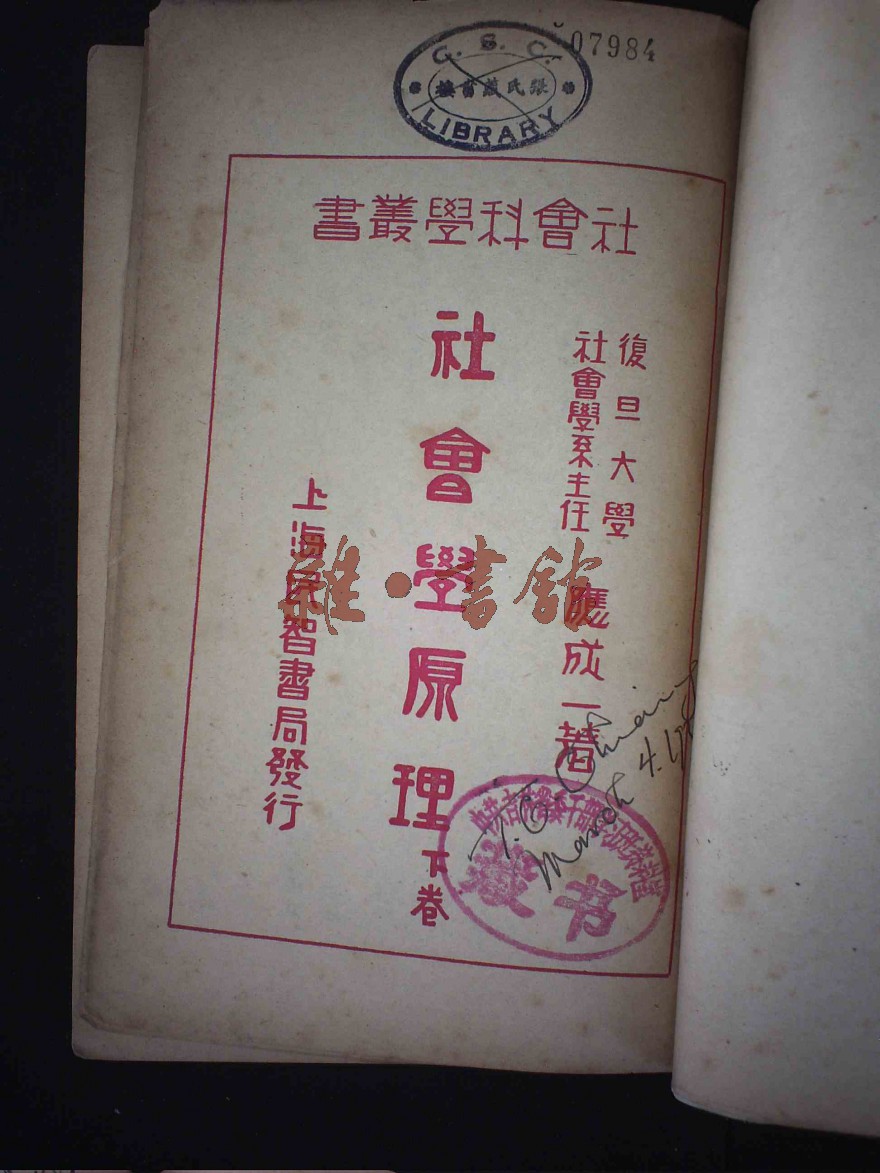 07984
G. S. C.
張氏藏書樓
LIBRARY
社會科學叢書
復旦大學
社會學系主任
應成一著
社會學原理
下卷
上海民智書局發行
雜·書館
March 4.
藏书